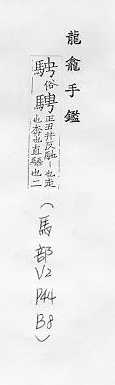 龍龕手鑑
𩢿俗騁正丑井反馳ー也走也奔也直驅也二
(馬部V2 P44 B8)